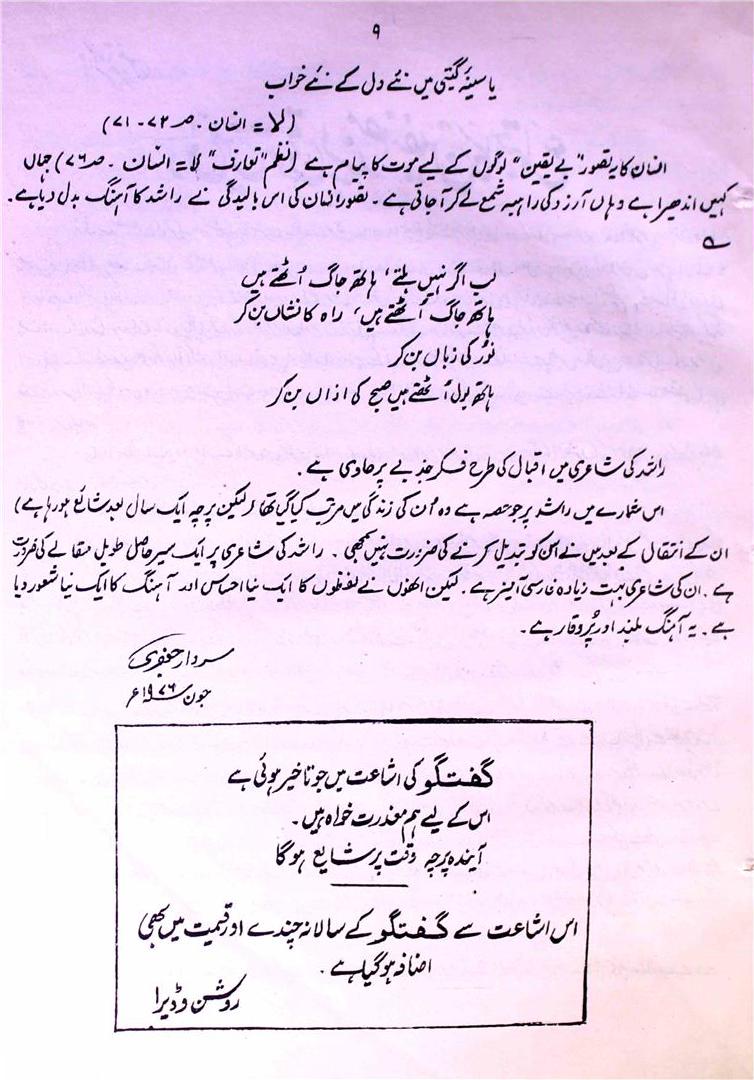 ۹
یا سینۂ گیتی میں نئے دل کے نئے خواب
(لا = انسان ۔ ص ۷۲ ۔ ۷۱)
انسان کا یہ تصور "بے یقین" لوگوں کے لیے موت کا پیام ہے (نظم "تعارف" لا = انسان ۔ ص ۷۶) جہاں
کہیں اندھیرا ہے وہاں آرزو کی راہبہ شمع لے کر آ جاتی ہے۔ تصور انسان کی اس بالیدگی نے راشد کا آہنگ بدل دیا ہے۔
لب اگر نہیں ہلتے، ہاتھ جاگ اُٹھتے ہیں
ہاتھ جاگ اُٹھتے ہیں، راہ کا نشاں بن کر
نور کی زباں بن کر
ہاتھ بول اُٹھتے ہیں صبح کی اذاں بن کر
راشد کی شاعری میں اقبال کی طرح فکر جذبے پر حاوی ہے۔
اس شمارے میں راشد پر جو حصہ ہے وہ اُن کی زندگی میں مرتب کیا گیا تھا (لیکن پرچہ ایک سال بعد شائع ہو رہا ہے)
ان کے انتقال کے بعد میں نے اس کو تبدیل کرنے کی ضرورت نہیں سمجھی ۔ راشد کی شاعری پر ایک سیر حاصل طویل مقالے کی ضرورت
ہے۔ ان کی شاعری بہت زیادہ فارسی آمیز ہے۔ لیکن انھوں نے لفظوں کا ایک نیا احساس اور آہنگ کا ایک نیا شعور دیا
ہے۔ یہ آہنگ بلند اور پُر وقار ہے۔
سردار جعفری
جون ۱۹۷۶ء
گفتگو کی اشاعت میں جو تاخیر ہوئی ہے
اس کے لیے ہم معذرت خواہ ہیں۔
آیندہ پرچہ وقت پر شایع ہوگا
اس اشاعت سے گفتگو کے سالانہ چندے اور قیمت میں بھی
اضافہ ہو گیا ہے۔
روشن وڈیرا